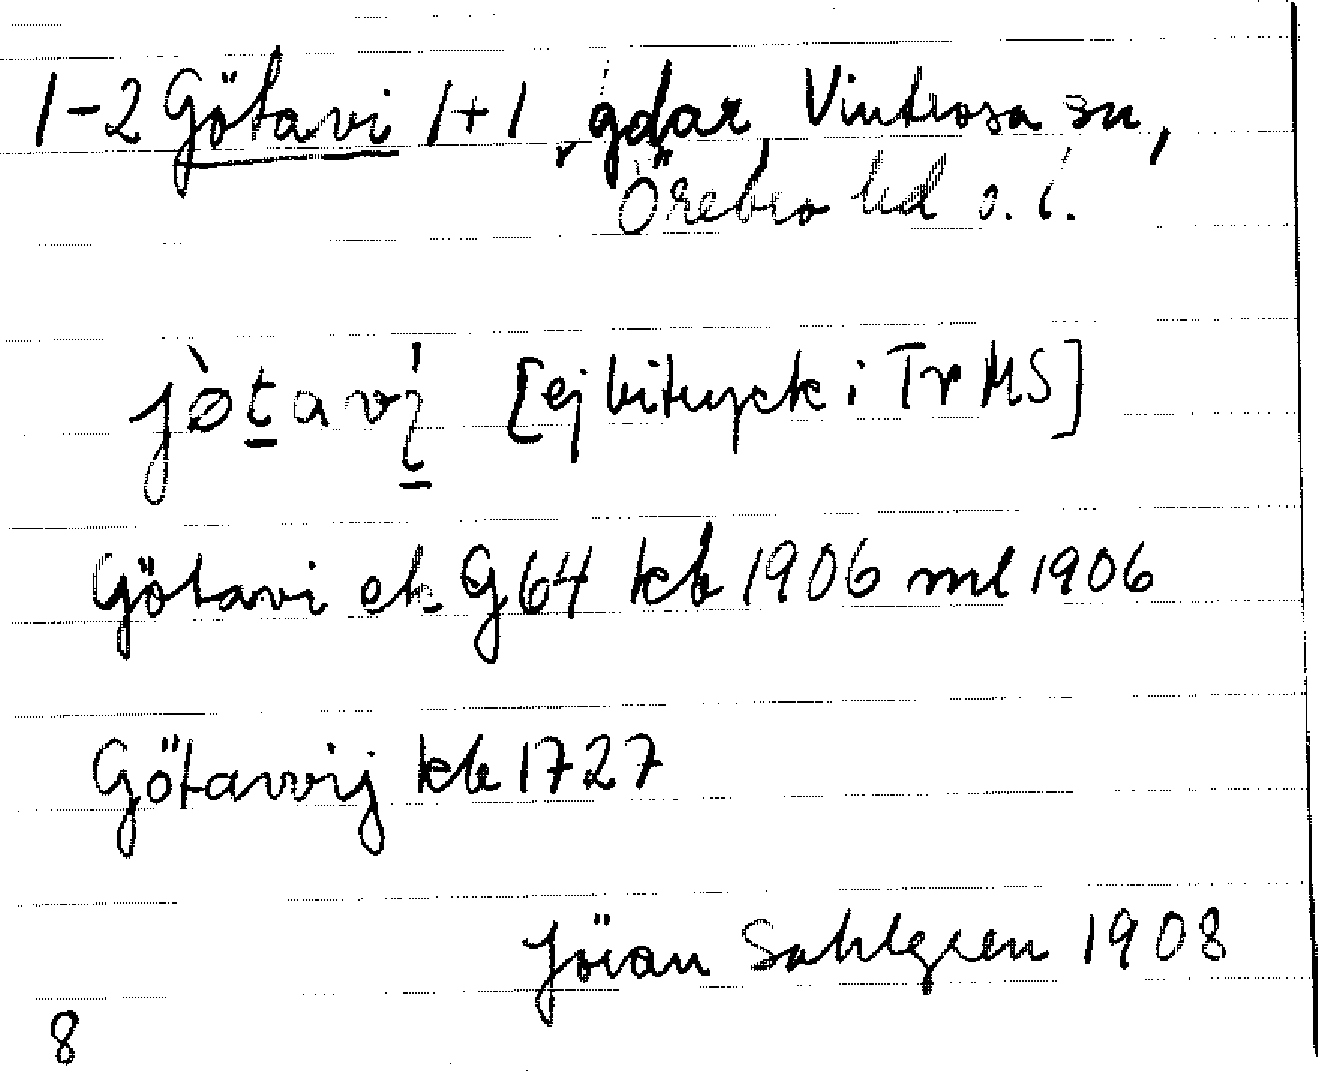 1-2 Götavi 1+1, gdar Vintrosa sn,
Örebro hd ö. l.
jø̀tavi̇ [ej bitryck i Tr MS]
Götavi ek G64 kb 1906 ml 1906
Götavvij kb 1727
Jöran Sahlgren 1908
8